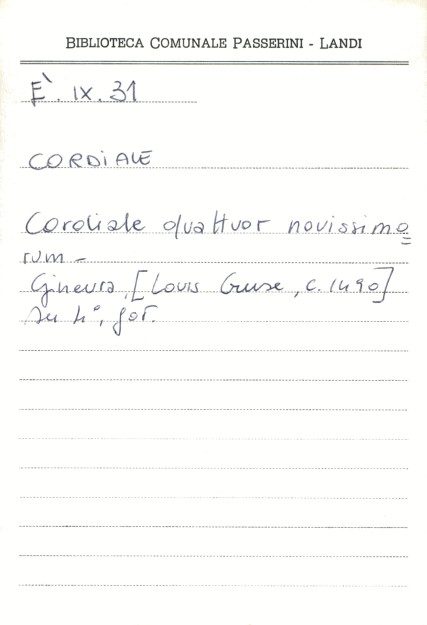 BIBLIOTECA COMUNALE PASSERINI - LANDI
È. IX. 31
CORDIALE
Cordiale quattuor novissimo=
rum -
Ginevra, [Louis Cruse, c. 1490]
In 4°, got.